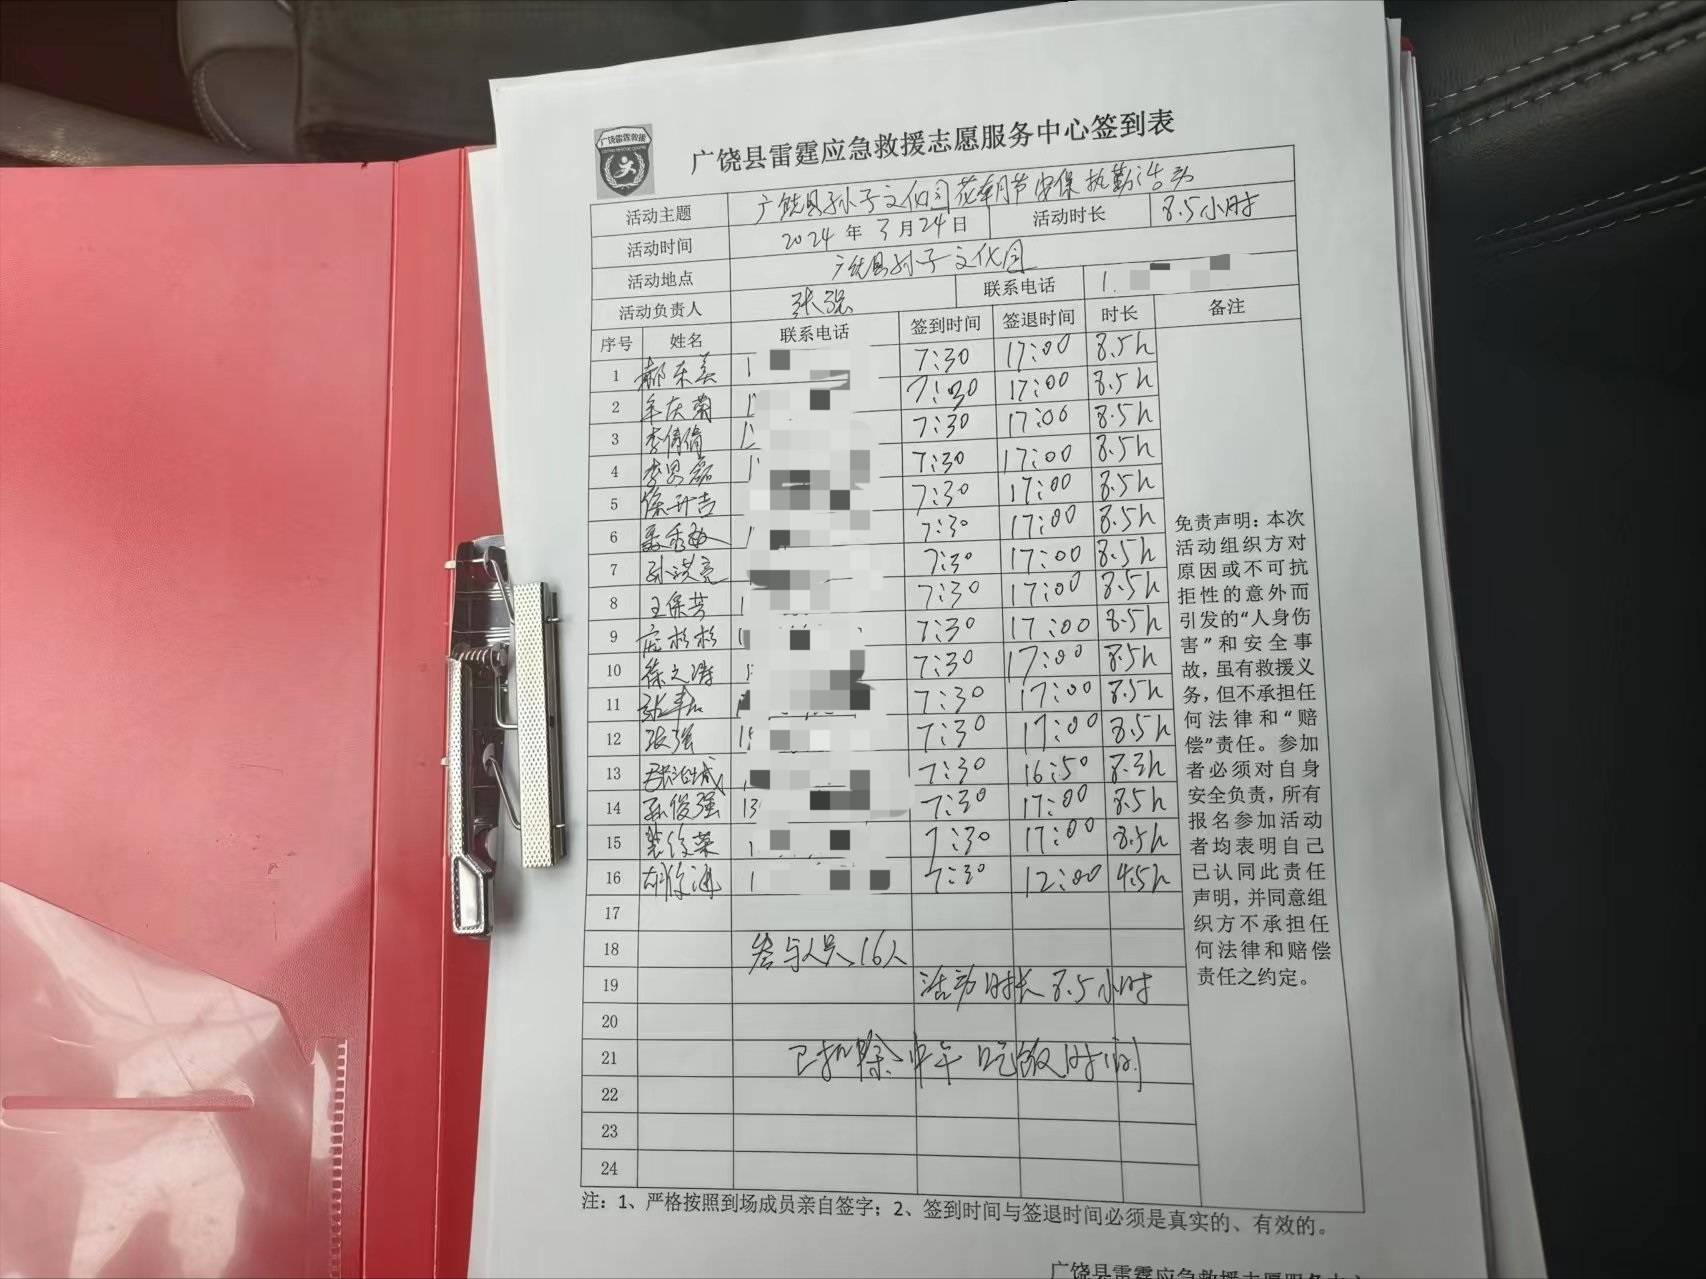 广饶雷霆救援
广饶县雷霆应急救援志愿服务中心签到表
活动主题 广饶县孙子文化园花朝节安保执勤活动
活动时间 2024 年 3 月 24 日 活动时长 8.5小时
活动地点 广饶县孙子文化园
活动负责人 张强 联系电话 1
序号 姓名 联系电话 签到时间 签退时间 时长 备注
1 郝东美 1 7:30 17:00 8.5h
2 牟庆菊 1 7:30 17:00 8.5h
3 李倩倩 1 7:30 17:00 8.5h
4 李男磊 1 7:30 17:00 8.5h
5 徐升吉 7:30 17:00 8.5h
6 聂秀敏 1 7:30 17:00 8.5h
7 孙洪亮 7:30 17:00 8.5h
8 王保芳 1 7:30 17:00 8.5h
9 庞杉杉 1 7:30 17:00 8.5h
10 徐之涛 1 7:30 17:00 8.5h
11 7:30 17:00 8.5h
12 张强 15 7:30 17:00 8.5h
13 7:30 16:50 8.3h
14 孙俊强 13 7:30 17:00 8.5h
15 1 7:30 17:00 8.5h
16 1 7:30 12:00 4.5h
17
18 参与人员16人
19 活动时长8.5小时
20
21 已扣除中午吃饭时间
22
23
24
免责声明：本次
活动组织方对
原因或不可抗
拒性的意外而
引发的“人身伤
害”和安全事
故，虽有救援义
务，但不承担任
何法律和“赔
偿”责任。参加
者必须对自身
安全负责，所有
报名参加活动
者均表明自己
已认同此责任
声明，并同意组
织方不承担任
何法律和赔偿
责任之约定。
注：1、严格按照到场成员亲自签字；2、签到时间与签退时间必须是真实的、有效的。
广饶县雷霆应急救援志愿服务中心